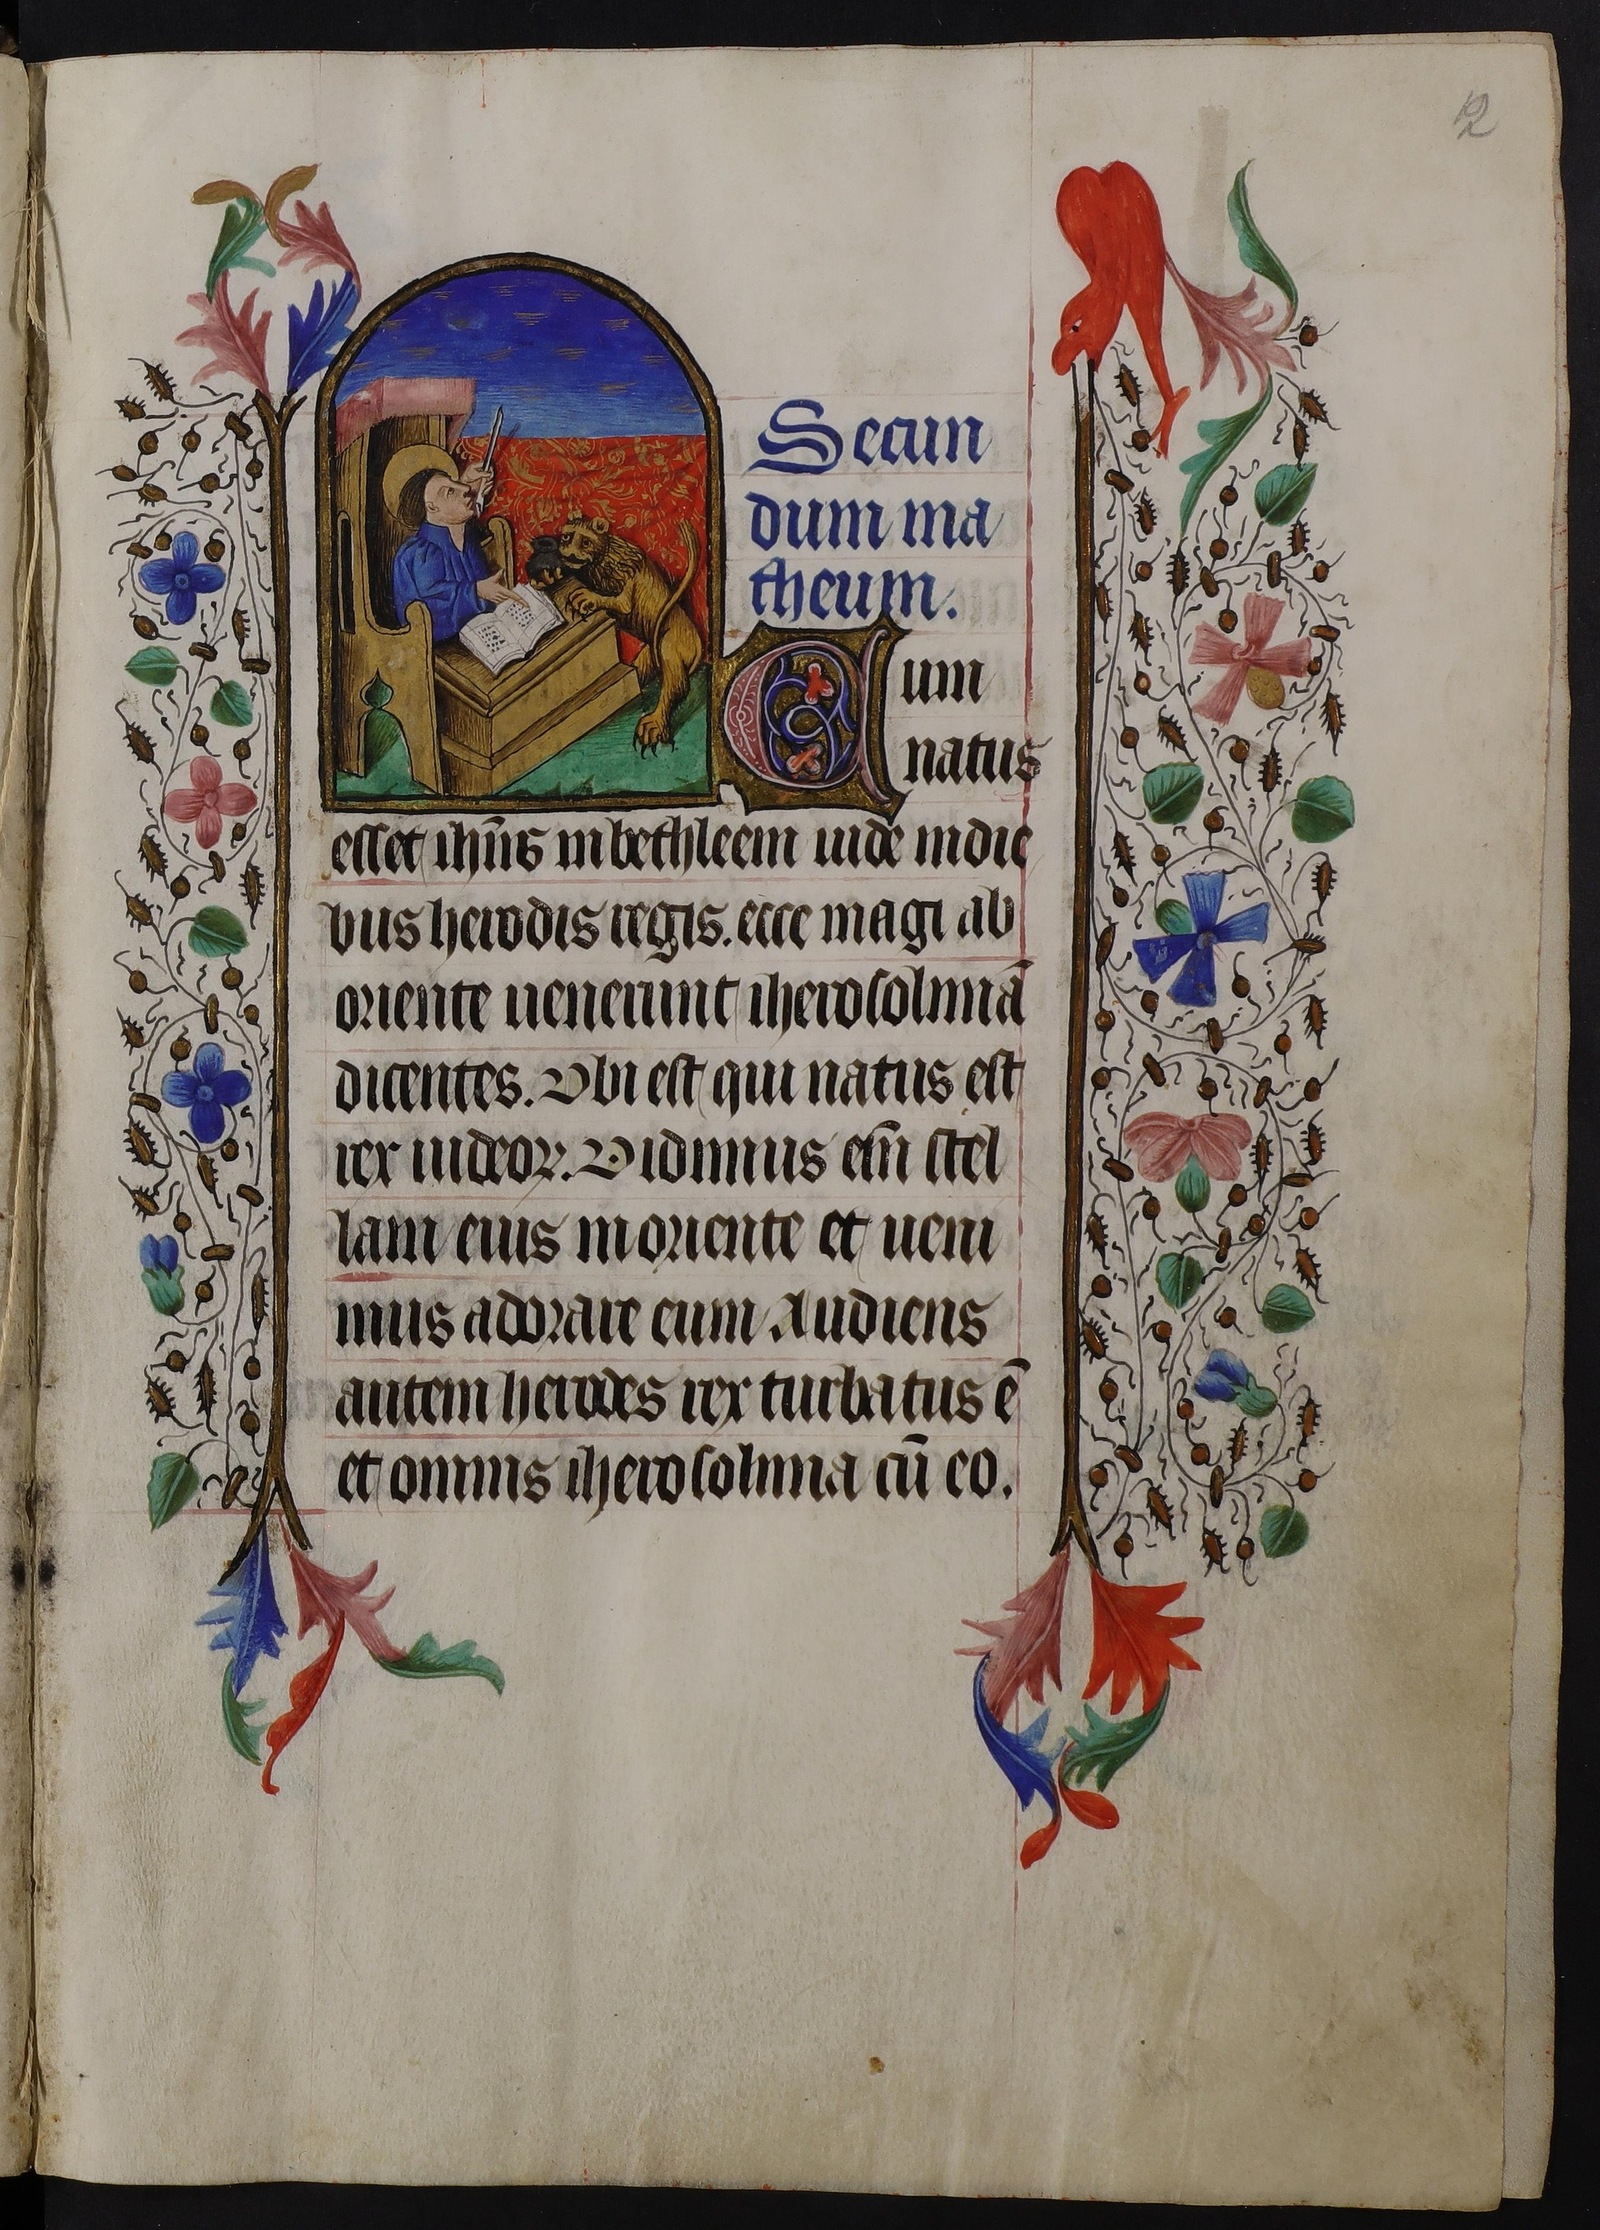 12
Secun
dum ma
theum.
Cum
natus
esset ihūs in bethleem iude in die
bus herodis regis. ecce magi ab
oriente uenerunt iherosolimā
dicentes. Vbi est qui natus est
rex iudeoꝝ. Vidimus em̄ stel
lam eius in oriente et ueni
mus adorare eum Audiens
autem herodes rex turbatus ē
et omnis iherosolima cū eo.